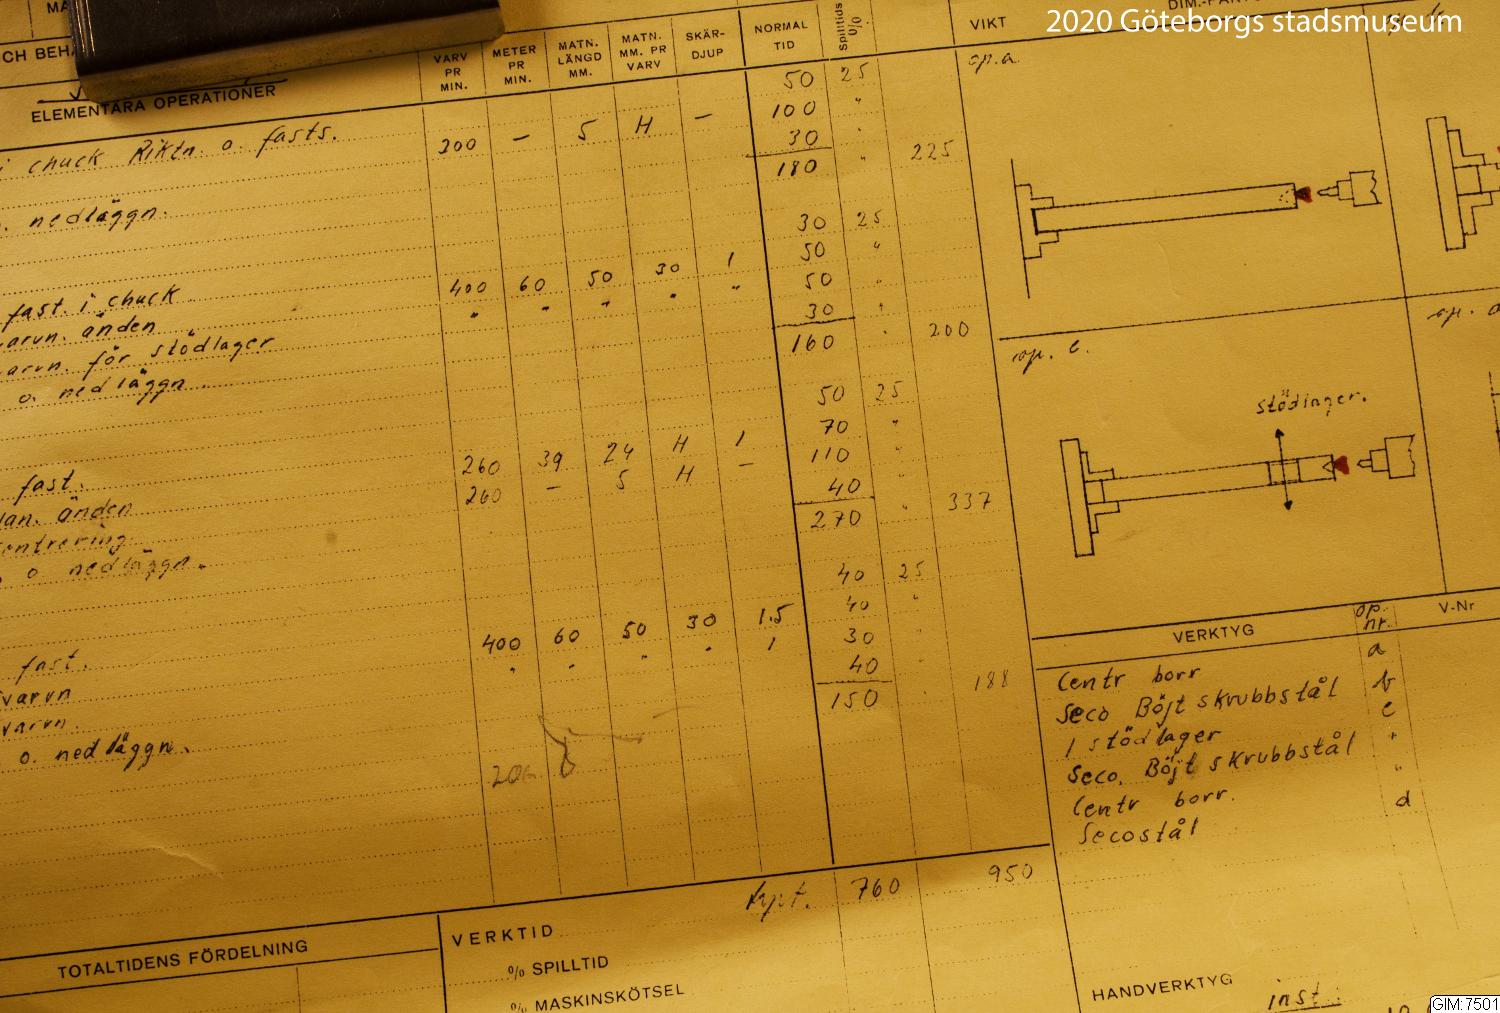 2020 Göteborgs stadsmuseum
MA
CH BEH
ELEMENTÄRA OPERATIONER
VARV PR MIN.
METER PR MIN.
MATN. LÄNGD MM.
MATN. MM. PR VARV
SKÄR-DJUP
NORMAL TID
Spilltids %
VIKT
50 25
100 "
i chuck Riktn. o. fasts. 300 – 5 H – 30 "
180 " 225
o. nedläggn.
30 25
50 "
fast. i chuck 400 60 50 30 1 50 "
varvn. änden " " " " " 30 "
varvn. för stödlager 160 " 200
o. nedläggn.
50 25
70 "
fast. 260 39 24 H 1 110 "
plan. änden 260 – 5 H – 40 "
centrering 270 " 337
o nedläggn.
40 25
40 "
fast. 400 60 50 30 1.5 30 "
varvn " " " " 1 40 "
varvn. 150 " 188
o. nedläggn.
760 950
TOTALTIDENS FÖRDELNING
VERKTID
% SPILLTID
% MASKINSKÖTSEL
op. a.
op. c.
stödlager.
VERKTYG op. nr. V-Nr
Centr borr a
Seco Böjt skrubbstål b
1 stödlager c
Seco. Böjt skrubbstål "
Centr borr. "
Secostål d
HANDVERKTYG
inst.
GIM:7501